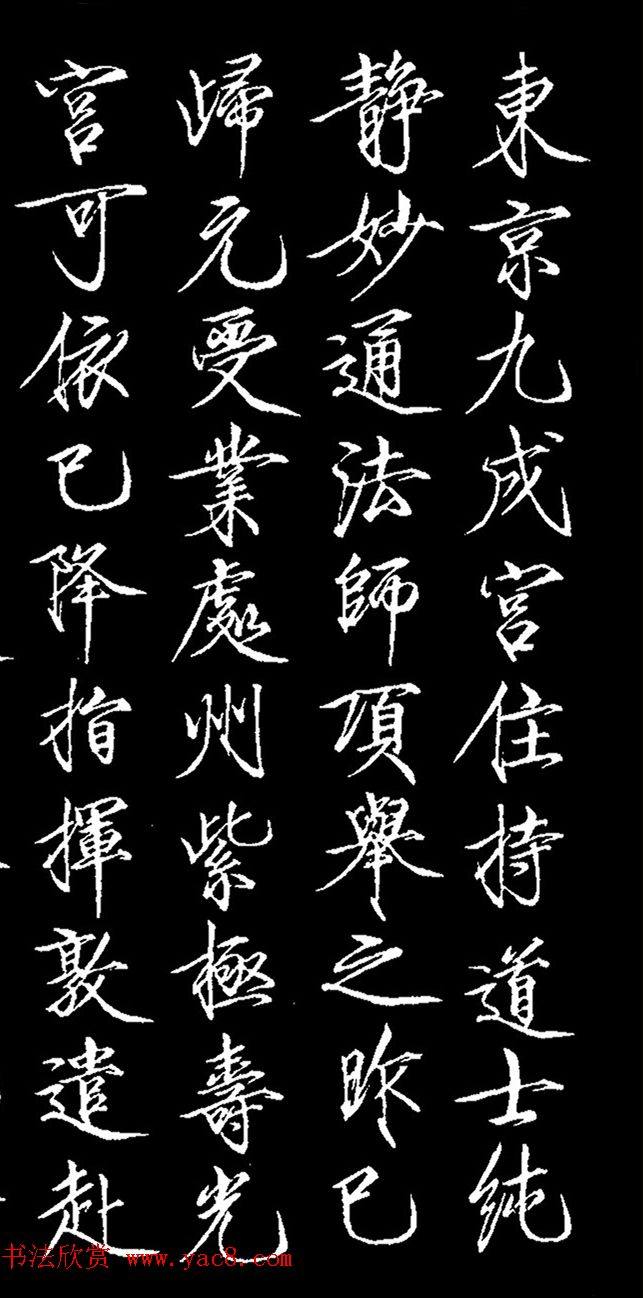 東京九成宮住持道士純
靜妙通法師項舉之昨已
歸元受業處州紫極壽光
宮可依已降指揮敦遣赴
书法欣赏 www.yac8.com